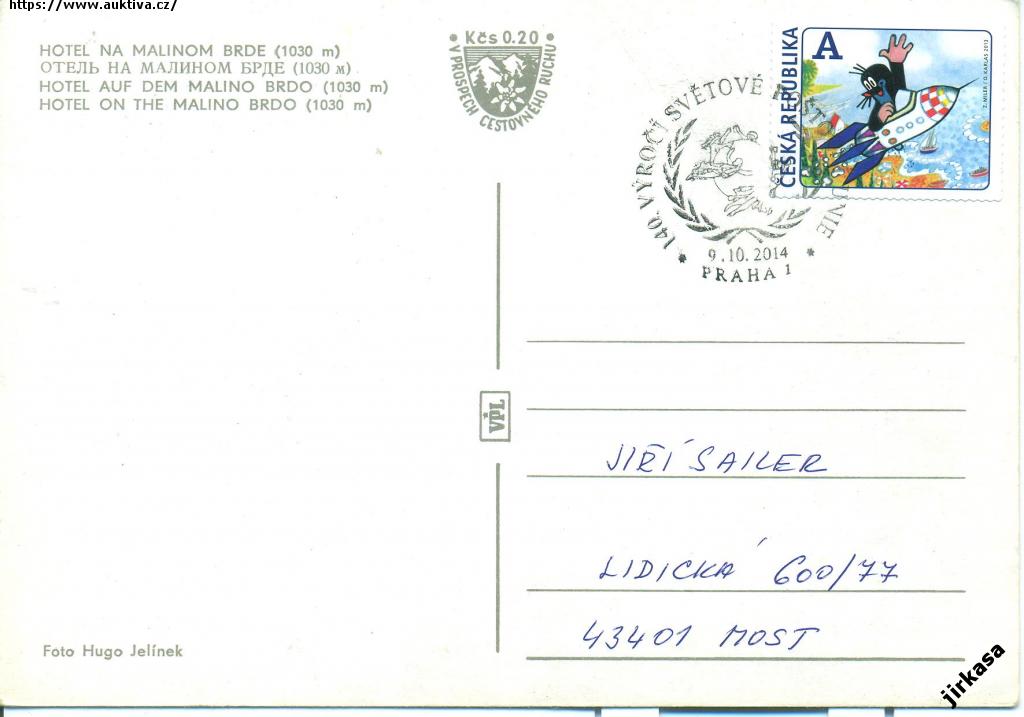 https://www.auktiva.cz/
HOTEL NA MALINOM BRDE (1030 m)
ОТЕЛЬ НА МАЛИНОМ БРДЕ (1030 м)
HOTEL AUF DEM MALINO BRDO (1030 m)
HOTEL ON THE MALINO BRDO (1030 m)
• Kčs 0.20 •
V PROSPECH CESTOVNÉHO RUCHU
140. VÝROČÍ SVĚTOVÉ UNIE
9.10.2014
* PRAHA 1 *
A
ČESKÁ REPUBLIKA
Z. MILER / O. KARLAS 2013
VPL
JIŘÍ SAILER
LIDICKÁ 600/77
43401 MOST
Foto Hugo Jelínek
jirkasa